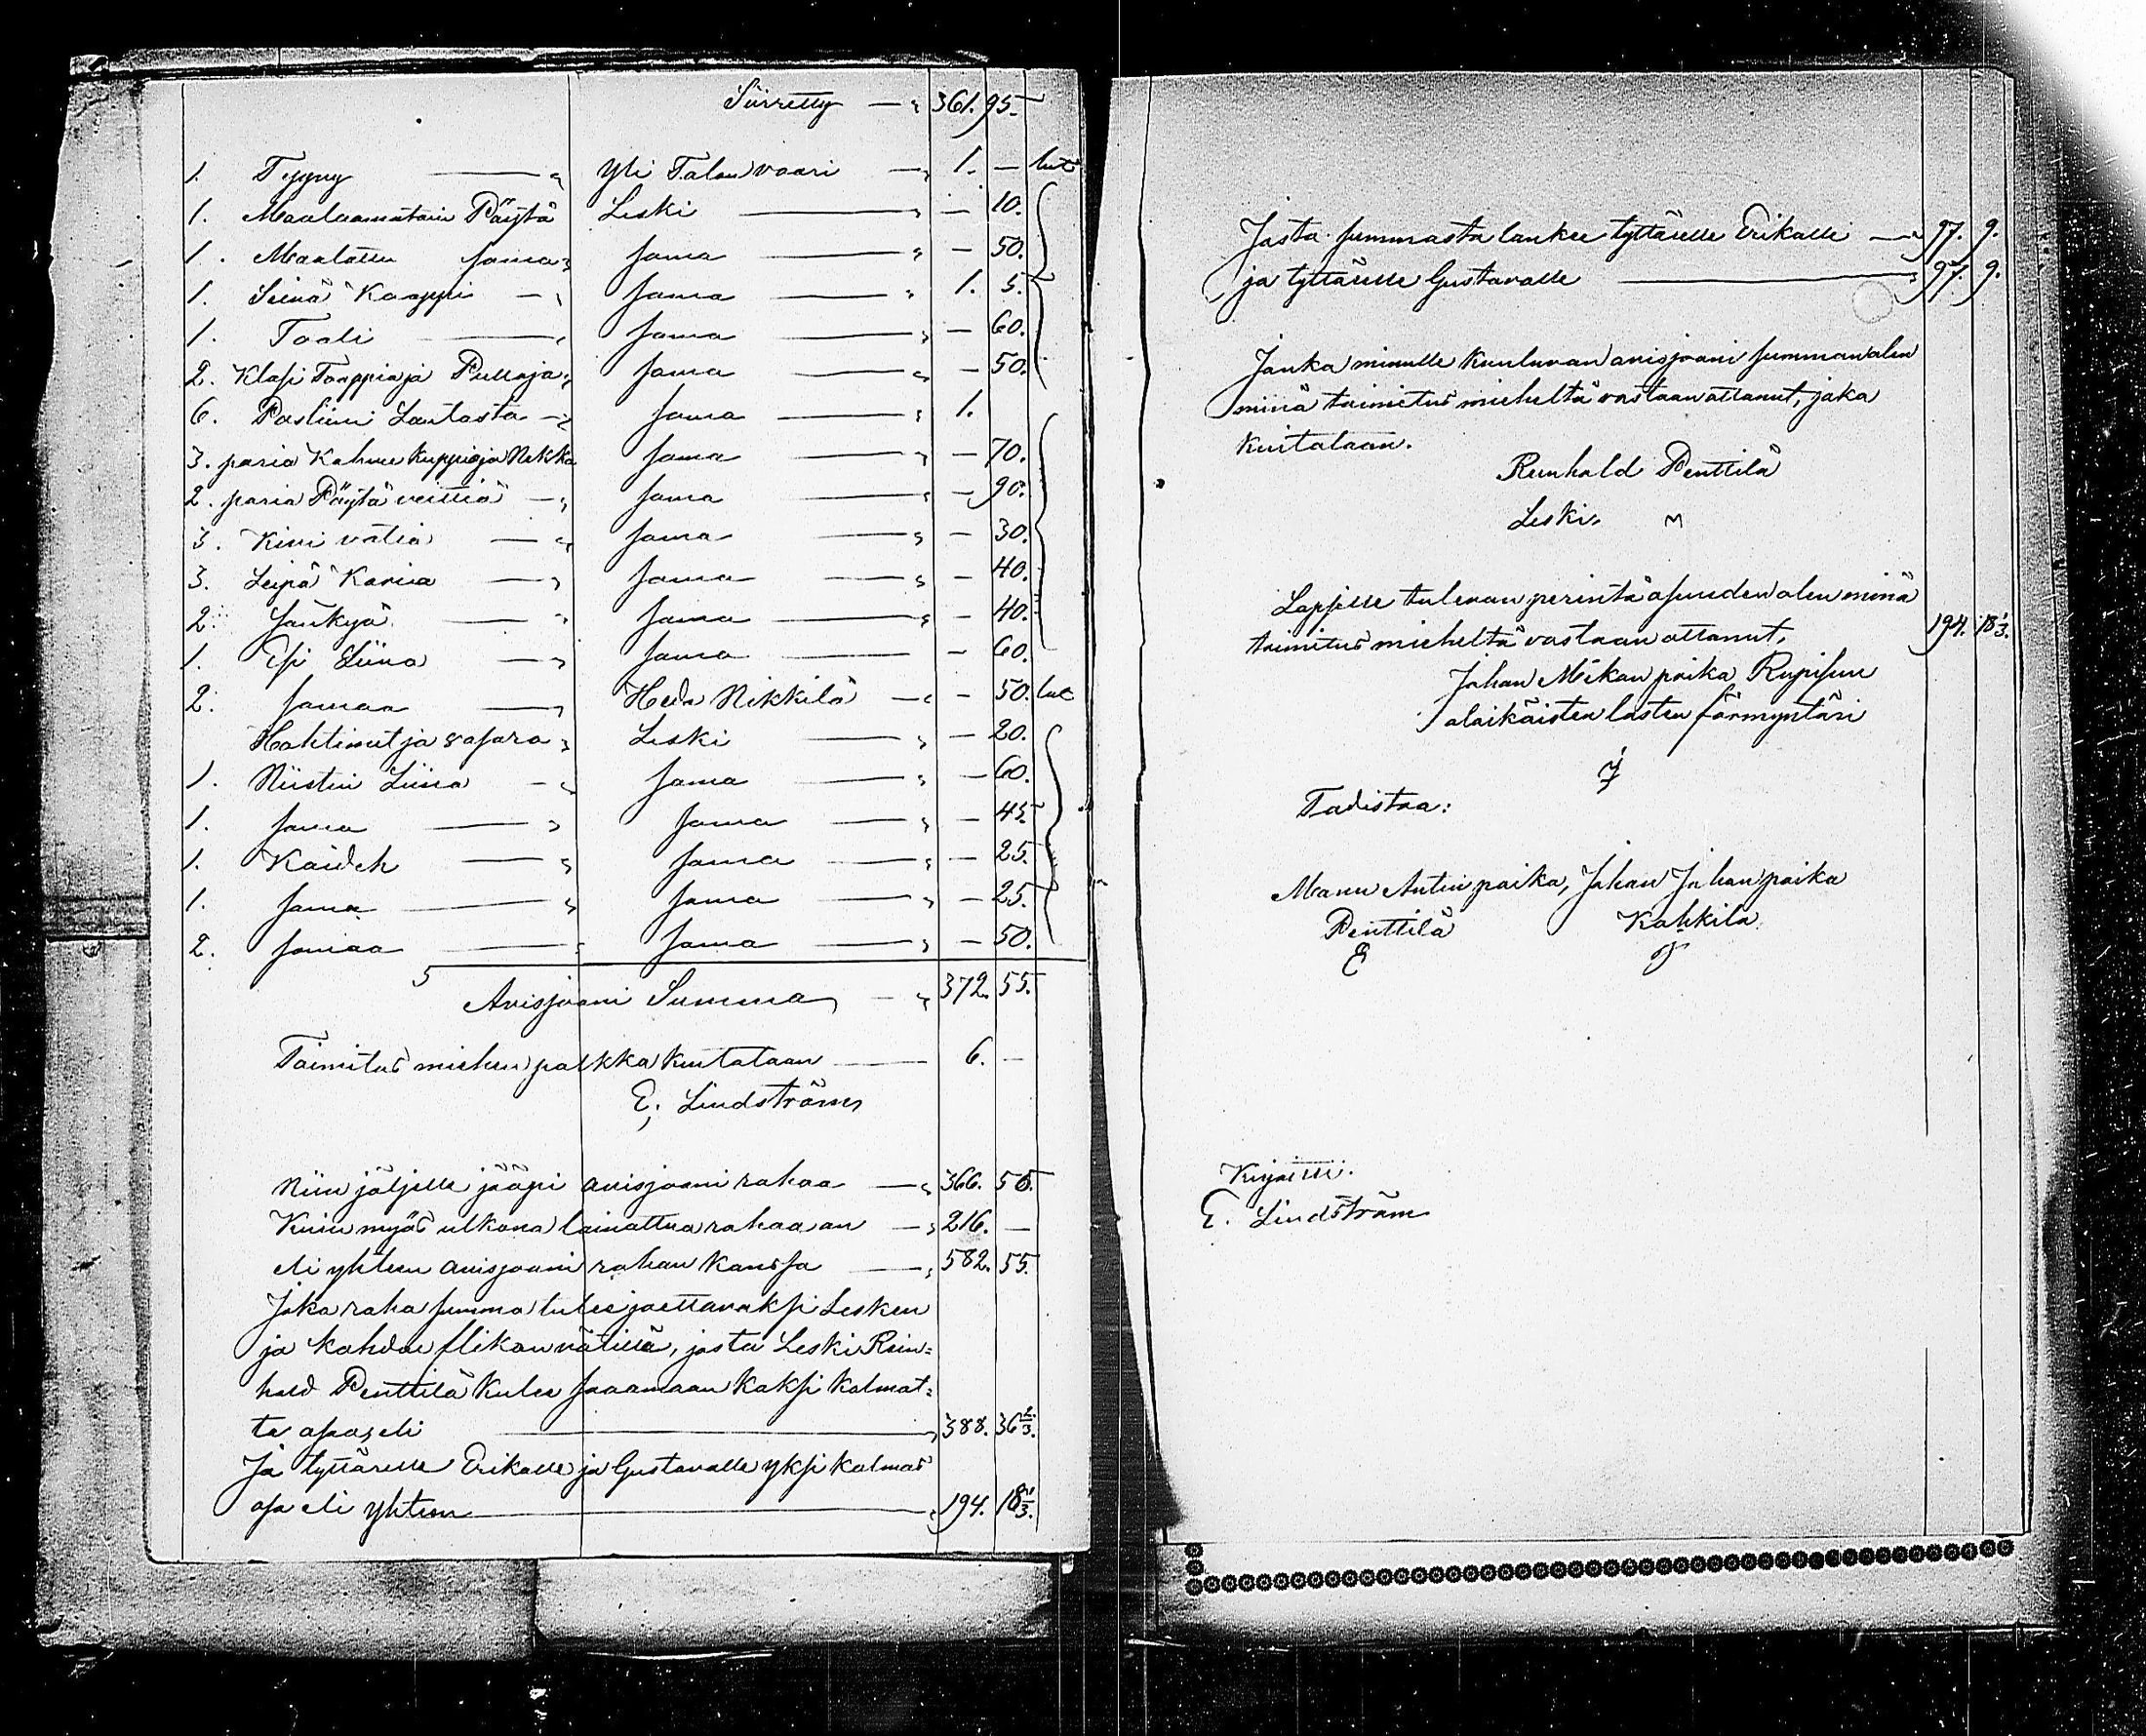 Siirretty — 361. 95.
1. Tyyny — Yli Talon vaari — 1. —
1. Maalaamatoin Pöytä Leski — — 10.
1. Maalattu sama Sama — — 50.
1. Seinä Kaappi — Sama — 1. 5.
1. Tooli — Sama — — 60.
2. Klasi Toppia ja Pulloja Sama — — 50.
6. Posliini Lautasta — Sama — 1.
3. paria Kahvee kuppia ja Nekka Sama — — 70.
2. paria Pöytä veitsiä — Sama — — 90.
3. Kivi vatia — Sama — — 30.
3. Leipä Koria — Sama — — 40.
2. Sänkyä — Sama — — 40.
1. Esi Liina — Sama — — 60.
2. samaa — Heda Nikkilä — — 50.
Hahtimet ja vasara Leski — — 20.
1. Niistin Liina — Sama — — 60.
1. sama — Sama — — 45.
1. Kaideh — Sama — — 25.
1. sama — Sama — — 25.
2. samaa — Sama — — 50.
Avisjooni Summa — 372. 55.
Toimitus miehen palkka kuitataan — 6. —
E. Lindström
Niin jäljelle jääpi avisjooni rahaa — 366. 55.
Kuin myös ulkona lainattua rahaa on — 216. —
eli yhteen avisjooni rahan kanssa — 582. 55.
Joka raha summa tulee jaettavaksi Lesken
ja kahden flikan välillä, josta Leski Rein=
hold Penttilä tulee saamaan kaksi kolmat=
ta osaa eli — 388. 36 2/3.
Ja tyttärelle Erikalle ja Gustavalle yksi kolmas
osa eli yhteen — 194. 18 1/3.
Josta summasta lankee tyttärelle Erikalle — 97. 9.
ja tyttärelle Gustavalle — 97. 9.
Jonka minulle kuuluvan avisjooni summan olen
minä toimitus mieheltä vastaan ottanut, joka
kuitataan.
Reinhold Penttilä
Leski.
Lapsille tulevan perintö osuuden olen minä
toimitus mieheltä vastaan ottanut, 194. 18 1/3.
Johan Mikon poika Rupisuu
alaikäisten lasten förmyntäri
Todistaa:
Manu Antin poika, Johan Johan poika
Penttilä Kahkila
Kirjoitti.
E. Lindström